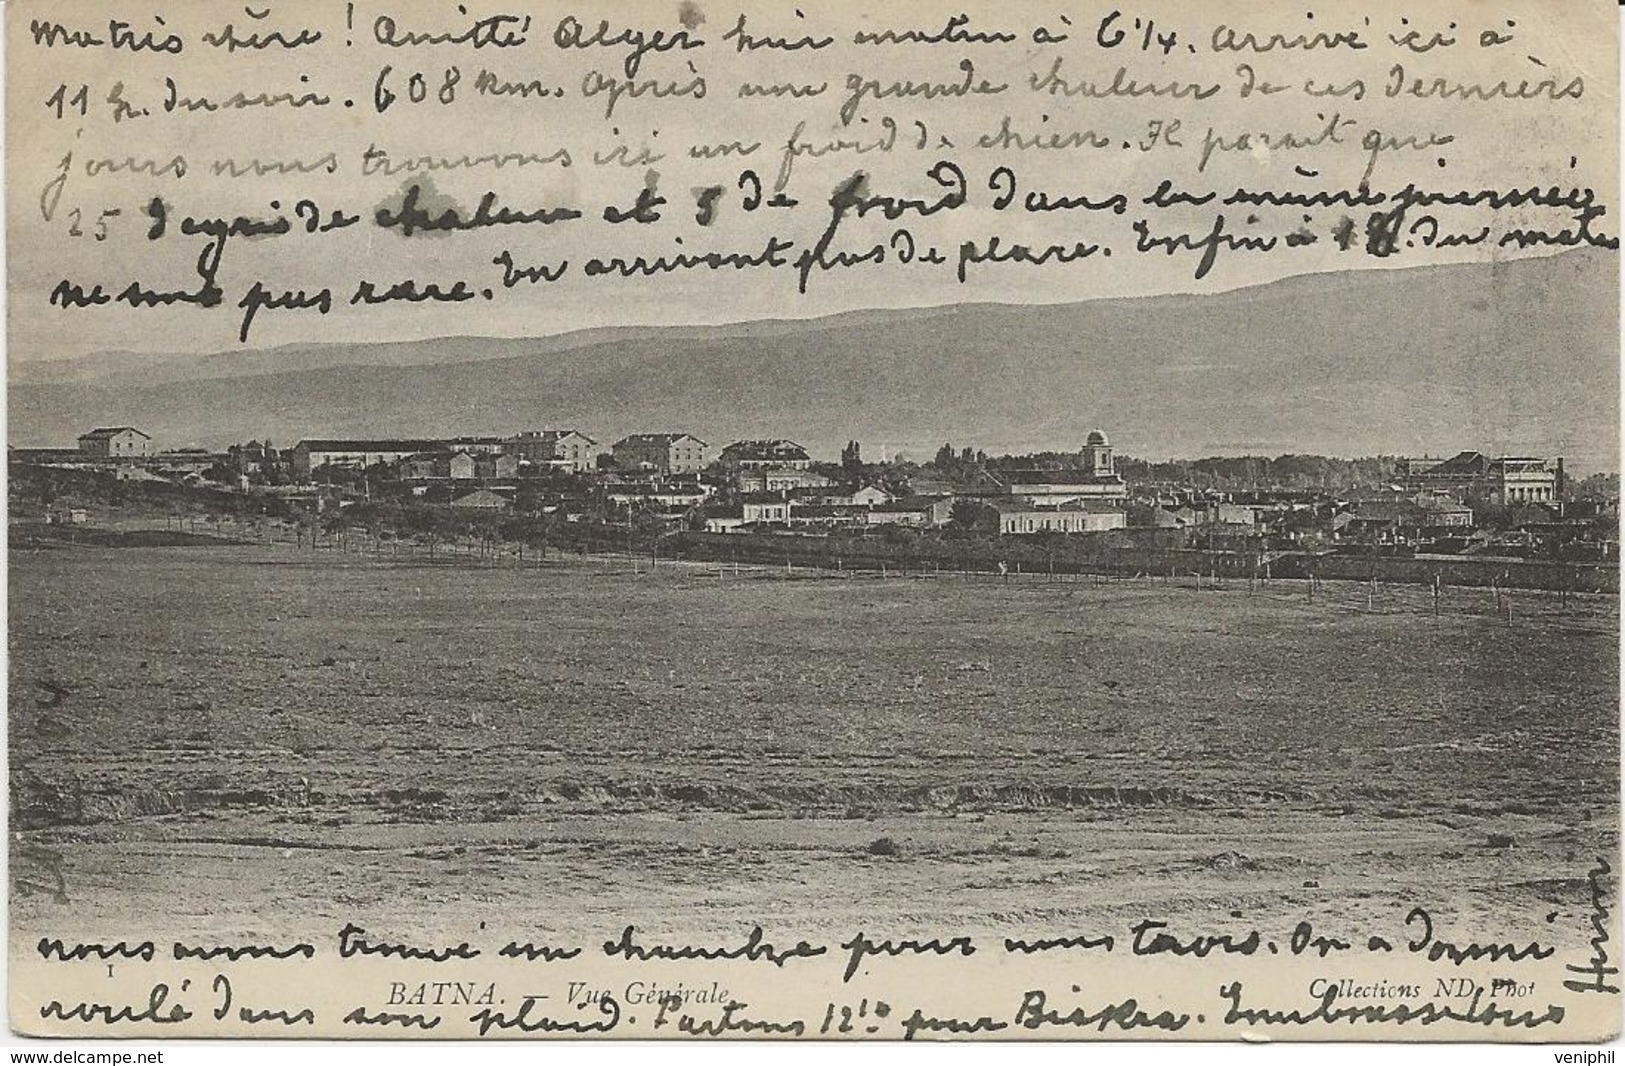 Ma très chère ! Quitté Alger hier matin à 6 1/4. Arrivé ici à
11 h. du soir. 608 km. Après une grande chaleur de ces derniers
jours nous trouvons ici un froid de chien. Il parait que
25 degrés de chaleur et 5 de froid dans la même journée
ne sont pas rare. En arrivant pas de place. Enfin à 1 h. du matin
nous avons trouvé un chambre pour nous trois. On a dormi
roulé dans son plaid. Partons 12 10 pour Biskra. Embrasse tous
1
BATNA. — Vue Générale
Collections ND Phot
veniphil